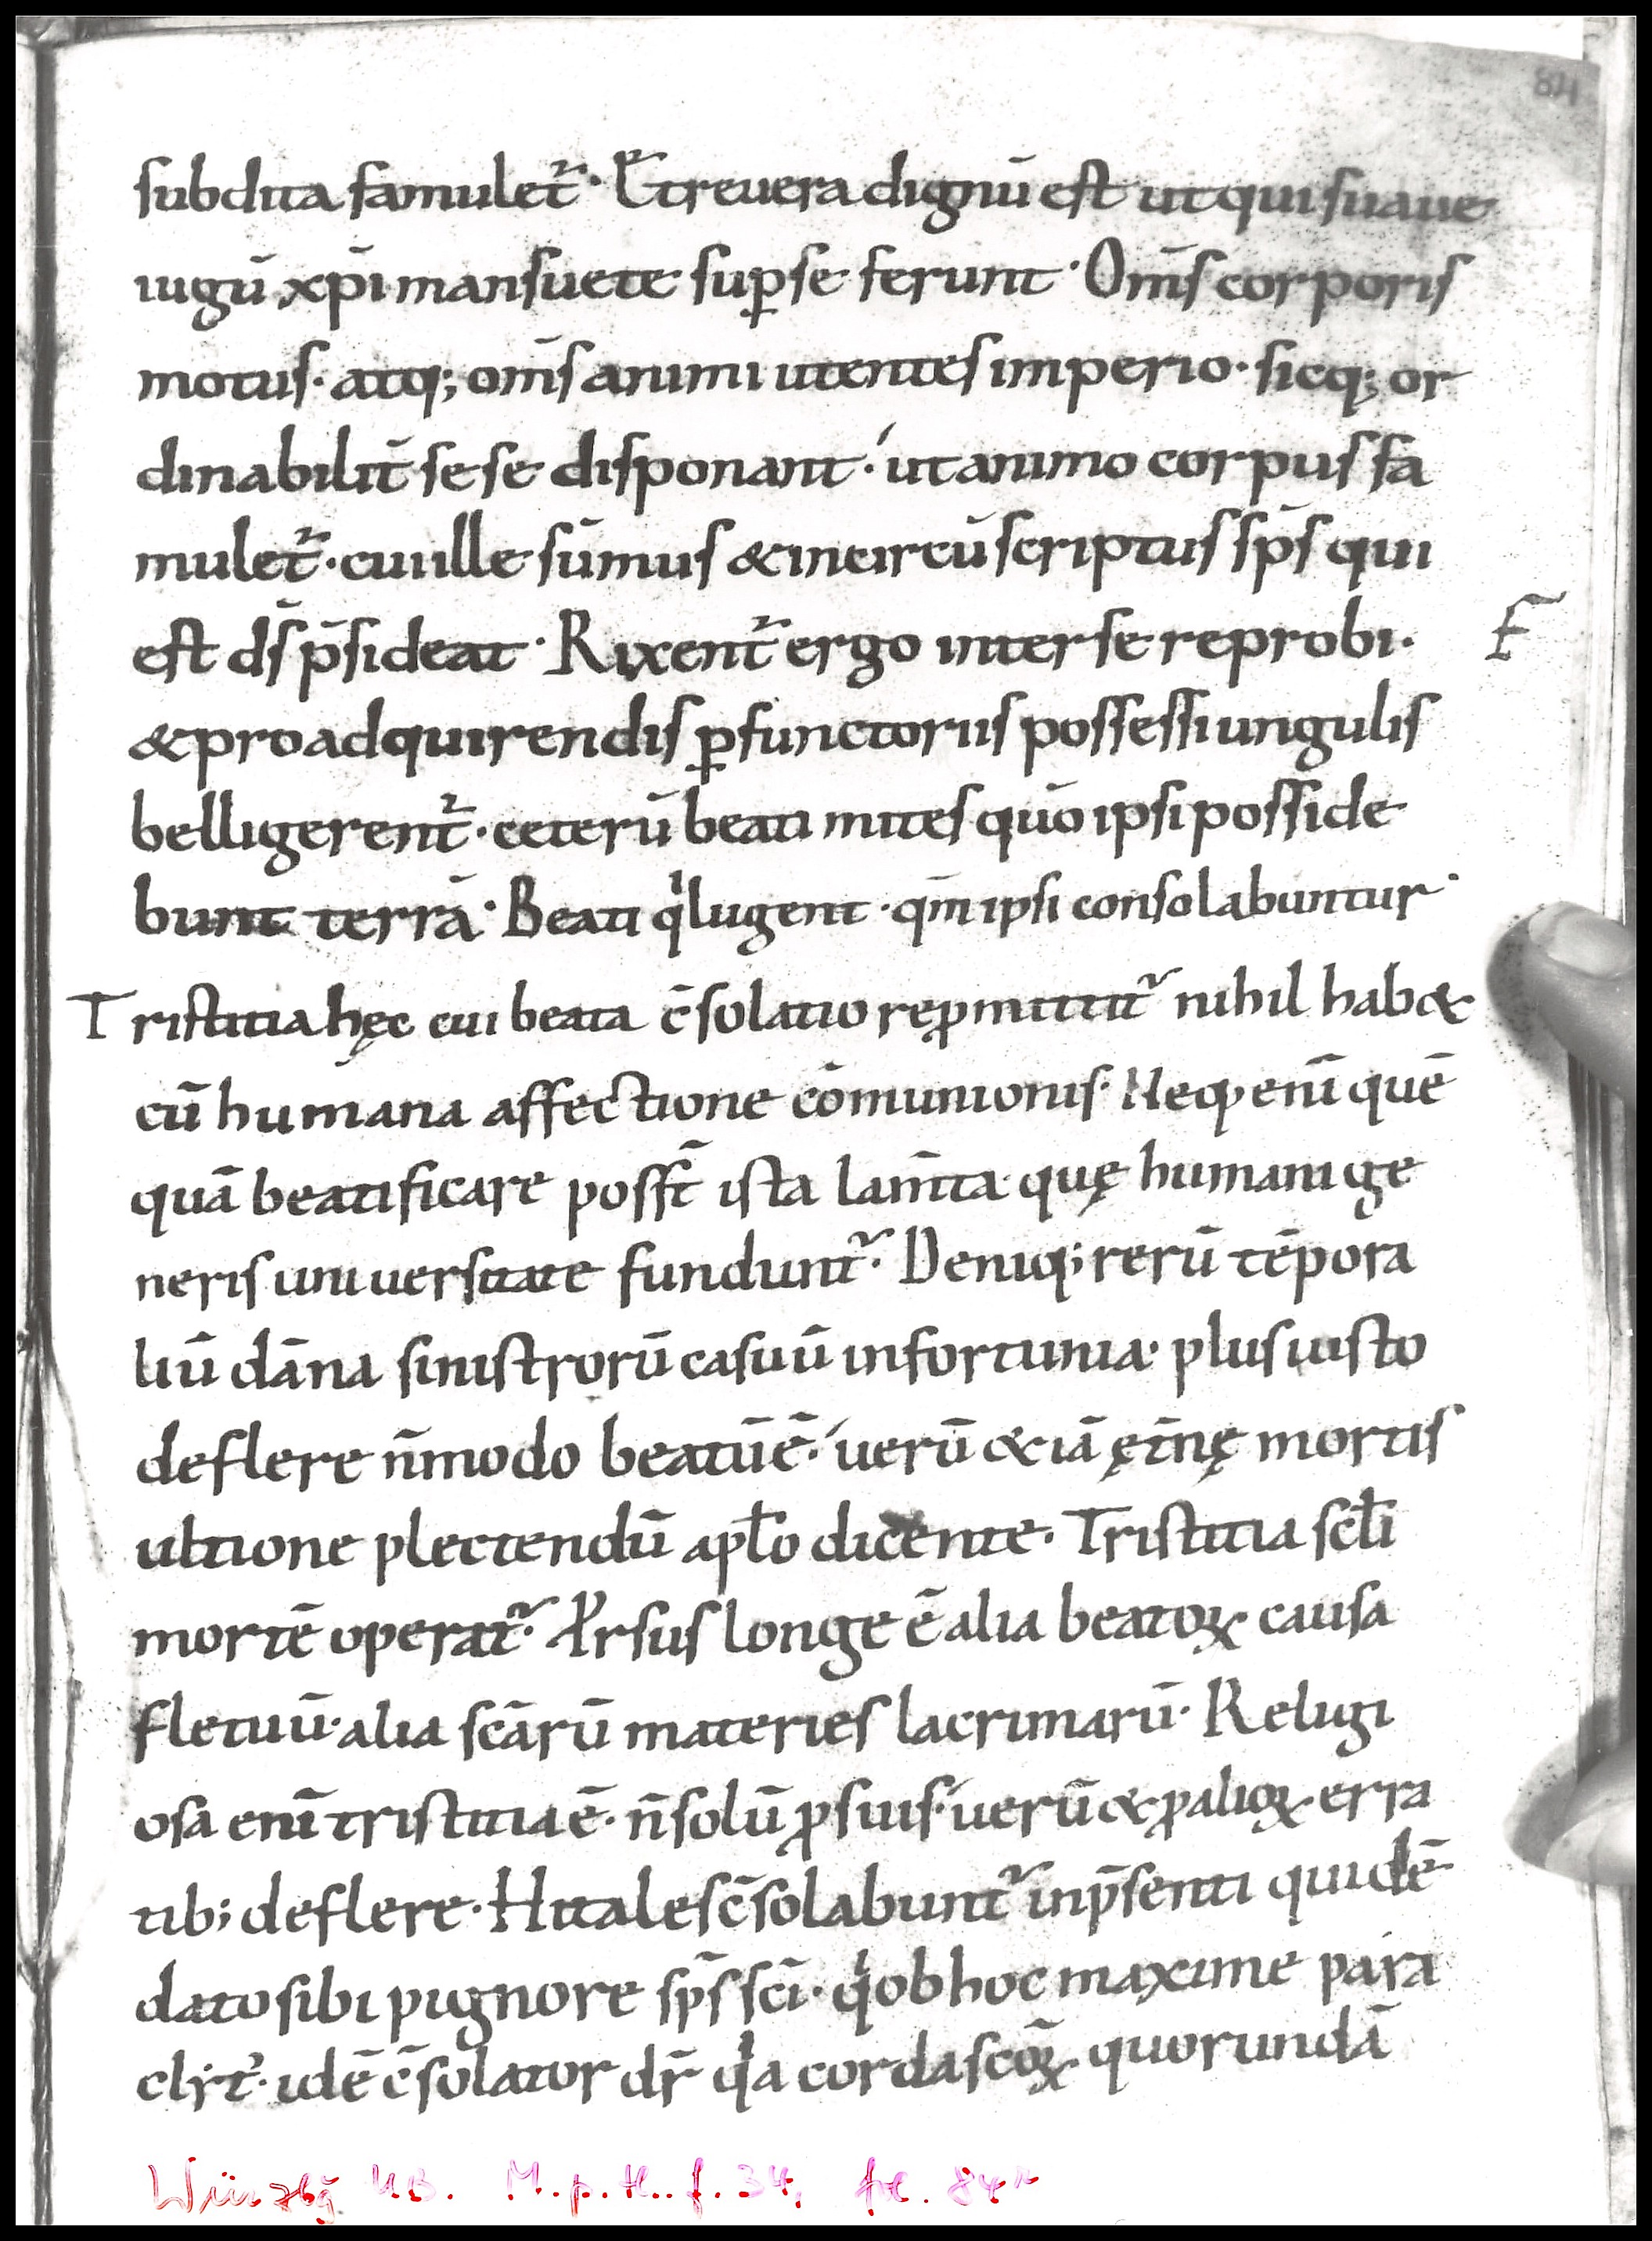 84
subdita famulet᷑· Et reuera dignū est ut qui suaue
iugū xp̄i mansuete sup̱ se ferunt· Om̄s corporis
motus· atq; om̄s animi utentes imperio· sicq; or
dinabilit̄ sese disponant·́ ut animo corpus fa
mulet᷑· cui ille sūmus & incircūscriptus sp̄s qui
est ds̄ p̄sideat· Rixent᷑ ergo inter se reprobi·
F̄
& pro adquirendis p̱functoriis possessiungulis
belligerent᷑· ceterū beati mites quō ipsi posside
bunt terrā· Beati qͥ lugent· qm̄ ipsi consolabuntur·
Tristitia hęc cui beata c̄solatio rep̱mittit᷑ nihil hab&
cū humana affectione cōmunionis· Neqꝫ enī quē
quā beatificare poss̄t ista lam̄ta· quę humani ge
neris uniuersitate fundunt᷑· Deniq; rerū tēpora
liū dāna sinistrorū casuū infortunia· plus iusto
deflere n̄ modo beatū ē·́ uerū & iā ęt̄nę mortis
ultione plectendū apl̄o dicente· Tristitia scl̄i
mortē operat᷑· Prsus longe ē alia beatoꝝ causa
fletuū· alia scārū materies lacrimarū· Relugi
osa enī tristitia ē· n̄ solū ꝓ suis·́ uerū & ꝓ alioꝝ erra
tib; deflere· Hi tales c̄solabunt᷑ in p̄senti quidē
dato sibi pignore sp̄s sc̄i· qͥ ob hoc maxime para
clyt᷒· idē c̄solator dr̄ qͥa corda sc̄oꝝ quorundā
Würzbg UB. M.p.th.f. 34, fol. 84r